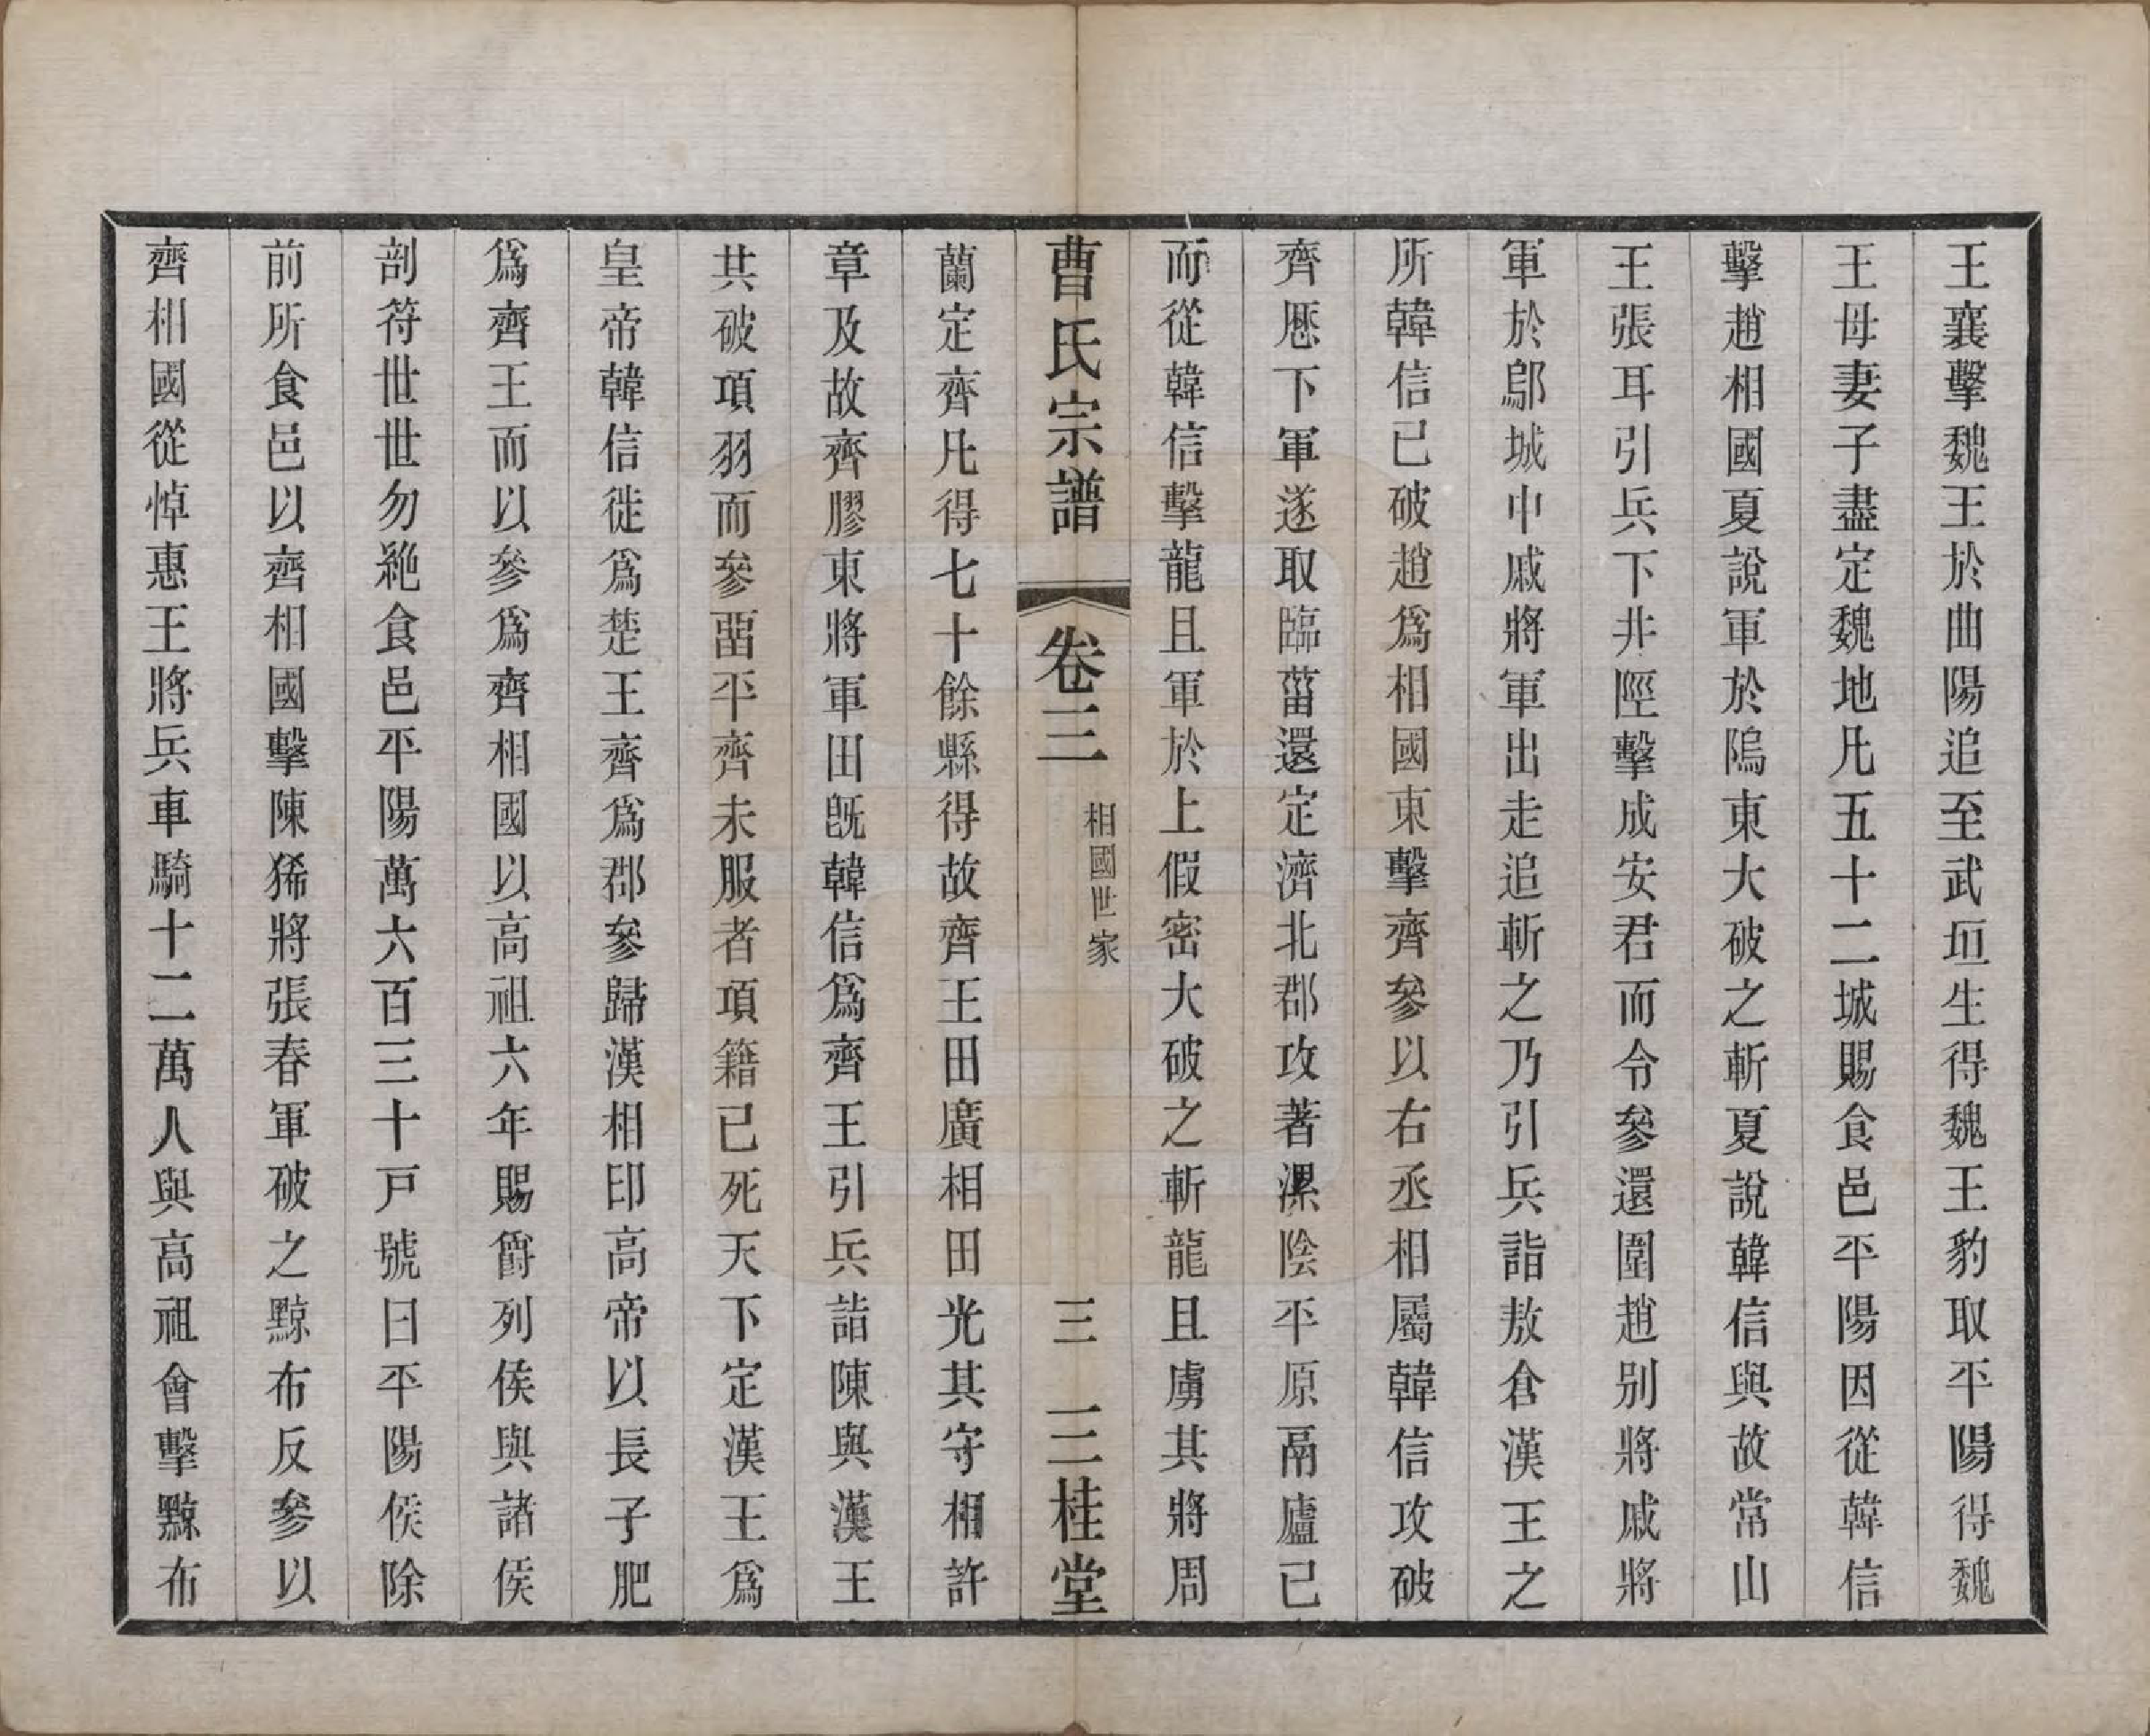 王襄擊魏王於曲陽追至武垣生得魏王豹取平陽得魏
王母妻子盡定魏地凡五十二城賜食邑平陽因從韓信
擊趙相國夏說軍於鄔東大破之斬夏說韓信與故常山
王張耳引兵下井陘擊成安君而令參還圍趙别將戚將
軍於鄔城中戚將軍出走追斬之乃引兵詣敖倉漢王之
所韓信已破趙爲相國東擊齊參以右丞相屬韓信攻破
齊厯下軍遂取臨菑還定濟北郡攻著漯陰平原鬲廬已
而從韓信擊龍且軍於上假密大破之斬龍且虜其將周
曹氏宗譜
卷三
相國世家
三
三桂堂
蘭定齊凡得七十餘縣得故齊王田廣相田光其守相許
章及故齊膠東將軍田旣韓信爲齊王引兵詣陳與漢王
共破項羽而參畱平齊未服者項籍已死天下定漢王爲
皇帝韓信徙爲楚王齊爲郡參歸漢相印高帝以長子肥
爲齊王而以參爲齊相國以高祖六年賜爵列侯與諸侯
剖符世世勿絶食邑平陽萬六百三十戸號曰平陽侯除
前所食邑以齊相國擊陳豨將張春軍破之黥布反參以
齊相國從悼惠王將兵車騎十二萬人與高祖會擊黥布